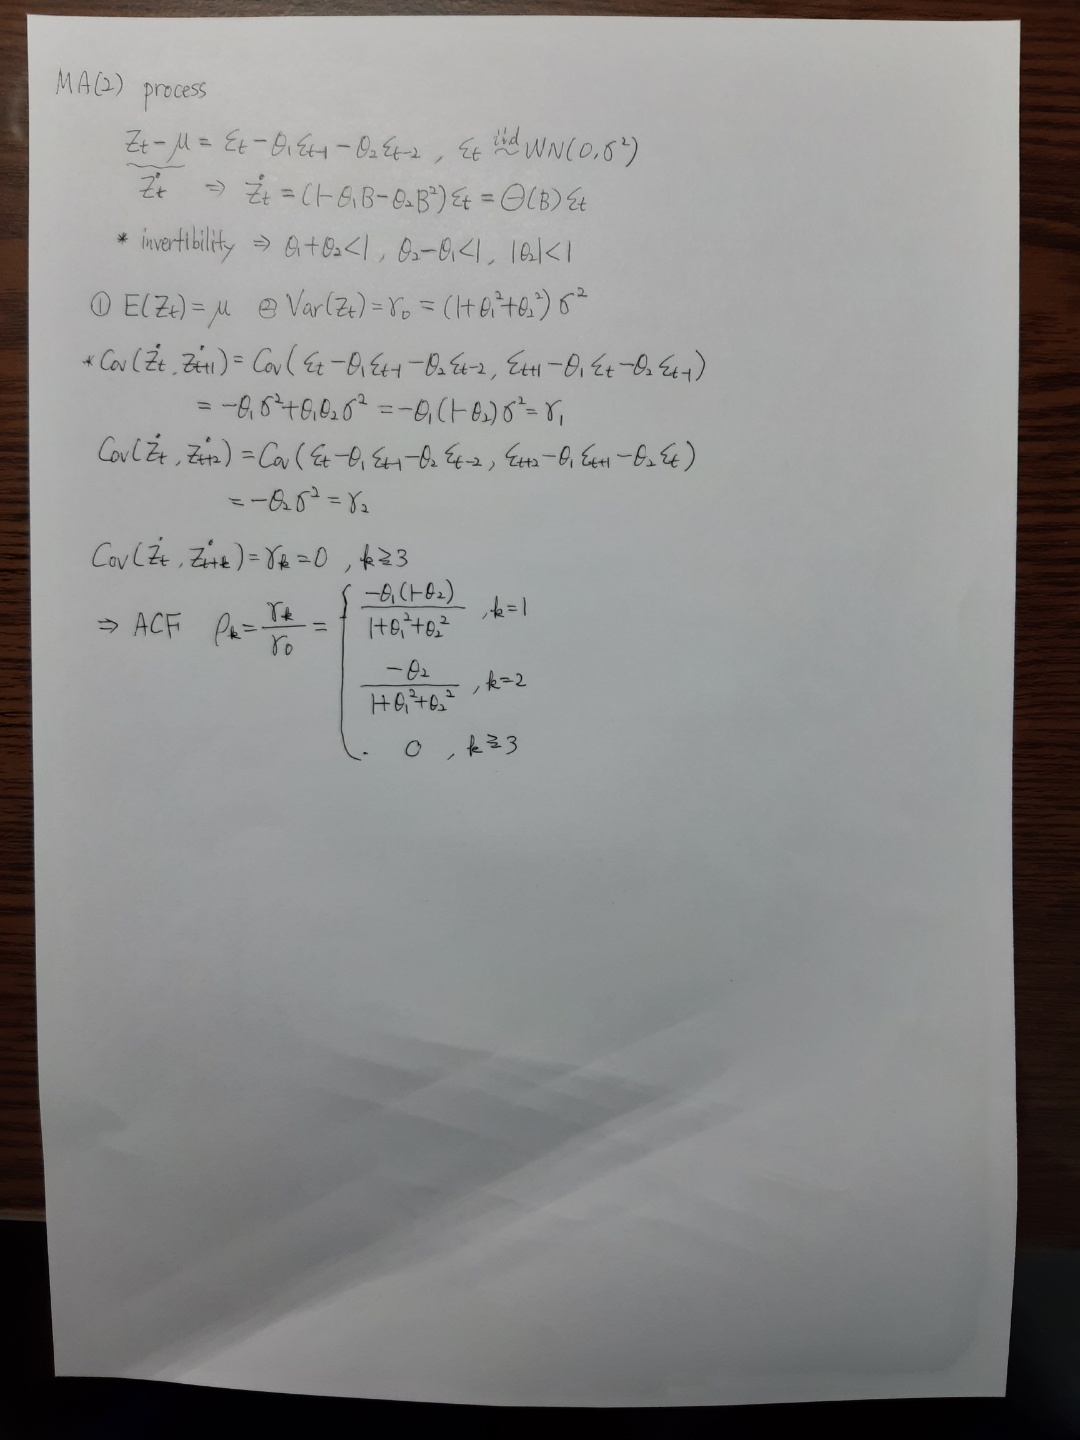 MA(2) process
Zt-μ = εt-θ₁εt-1-θ₂εt-2, εt iid~ WN(0,σ²)
Żt ⇒ Żt = (1-θ₁B-θ₂B²)εt = Θ(B)εt
* invertibility ⇒ θ₁+θ₂<1, θ₂-θ₁<1, |θ₂|<1
① E(Zt)=μ ② Var(Zt)=γ₀ = (1+θ₁²+θ₂²)σ²
* Cov(Żt, Żt+1) = Cov(εt-θ₁εt-1-θ₂εt-2, εt+1-θ₁εt-θ₂εt-1)
= -θ₁σ²+θ₁θ₂σ² = -θ₁(1-θ₂)σ² = γ₁
Cov(Żt, Żt+2) = Cov(εt-θ₁εt-1-θ₂εt-2, εt+2-θ₁εt+1-θ₂εt)
= -θ₂σ² = γ₂
Cov(Żt, Żt+k) = γk = 0, k≧3
⇒ ACF ρk = γk/γ₀ = { -θ₁(1-θ₂)/1+θ₁²+θ₂², k=1
-θ₂/1+θ₁²+θ₂², k=2
0, k≧3